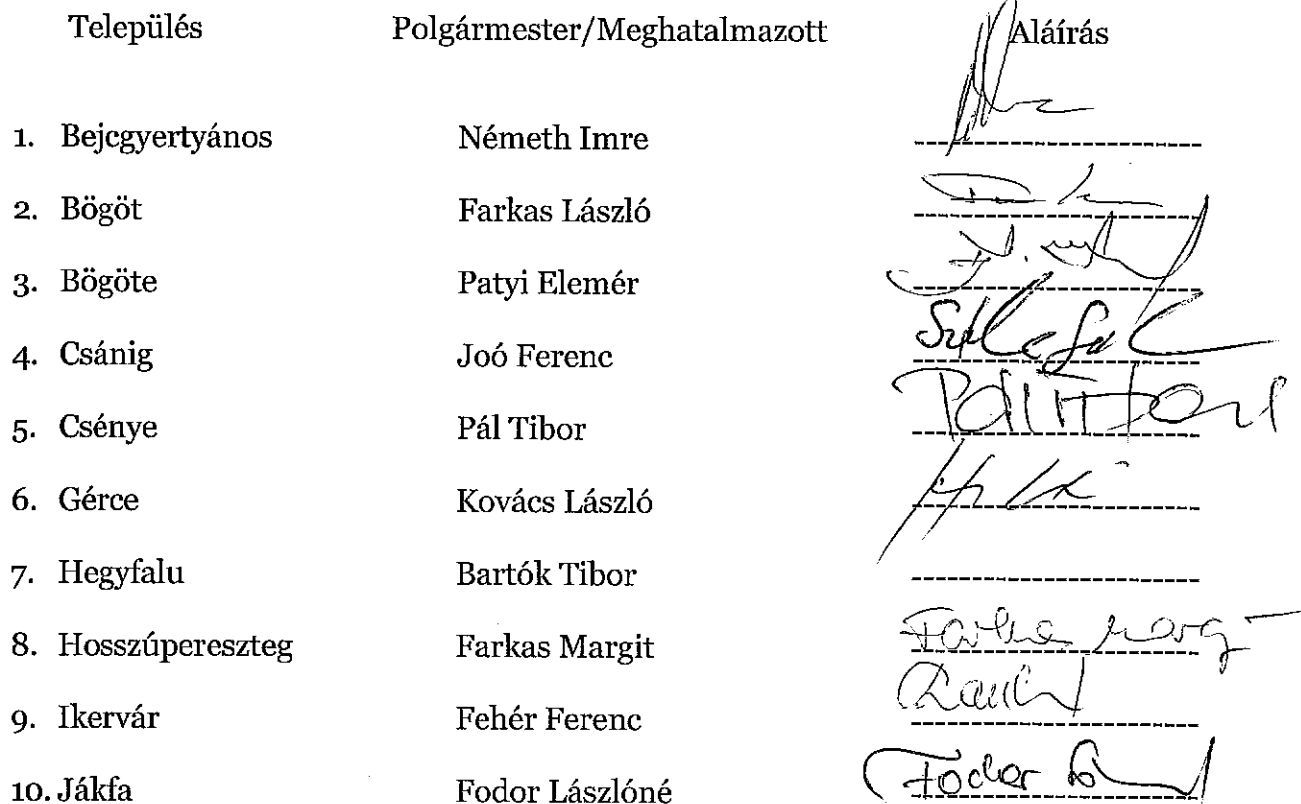 Település Polgármester/Meghatalmazott Aláírás
1. Bejcgyertyános Németh Imre
2. Bögöt Farkas László
3. Bögöte Patyi Elemér
4. Csánig Joó Ferenc
5. Csénye Pál Tibor Pál Tiborné
6. Gérce Kovács László
7. Hegyfalu Bartók Tibor
8. Hosszúpereszteg Farkas Margit Farkas Margit
9. Ikervár Fehér Ferenc
10. Jákfa Fodor Lászlóné Fodor